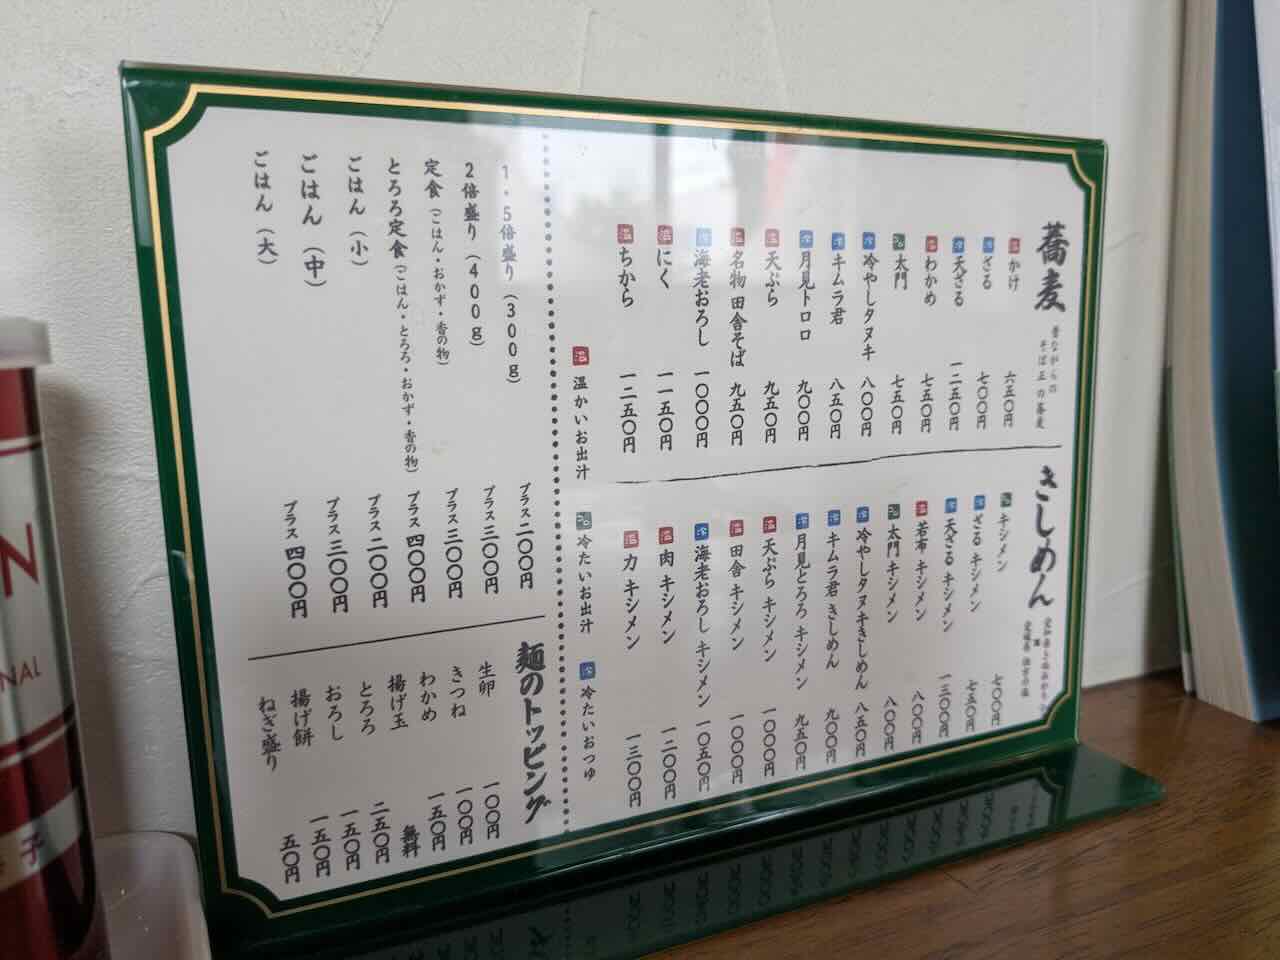 蕎麦
昔ながらの
そば正の蕎麦
温 かけ 六五〇円
冷 ざる 七〇〇円
冷 天ざる 一二五〇円
温 わかめ 七五〇円
太門 七五〇円
冷 冷やしタヌキ 八〇〇円
冷 キムラ君 八五〇円
冷 月見トロロ 九〇〇円
温 天ぷら 九五〇円
温 名物 田舎そば 九五〇円
冷 海老おろし 一〇〇〇円
温 にく 一一五〇円
温 ちから 一二五〇円
きしめん
キシメン 七〇〇円
冷 ざる キシメン 七五〇円
冷 天ざる キシメン 一三〇〇円
温 若布 キシメン 八〇〇円
太門 キシメン 八〇〇円
冷 冷やしタヌキきしめん 八五〇円
冷 キムラ君 きしめん 九〇〇円
冷 月見とろろ キシメン 九五〇円
温 天ぷら キシメン 一〇〇〇円
温 田舎 キシメン 一〇〇〇円
冷 海老おろし キシメン 一〇五〇円
温 肉 キシメン 一二〇〇円
温 力 キシメン 一三〇〇円
温 温かいお出汁
冷たいお出汁
冷 冷たいおつゆ
1・5倍盛り(300g) プラス 二〇〇円
2倍盛り(400g) プラス 三〇〇円
定食(ごはん・おかず・香の物) プラス 三〇〇円
とろろ定食(ごはん・とろろ・おかず・香の物) プラス 四〇〇円
ごはん(小) プラス 二〇〇円
ごはん(中) プラス 三〇〇円
ごはん(大) プラス 四〇〇円
麺のトッピング
生卵 一〇〇円
きつね 一〇〇円
わかめ 一五〇円
揚げ玉 無料
とろろ 二五〇円
おろし 一五〇円
揚げ餅 一五〇円
ねぎ盛り 五〇円
N
NAL
子